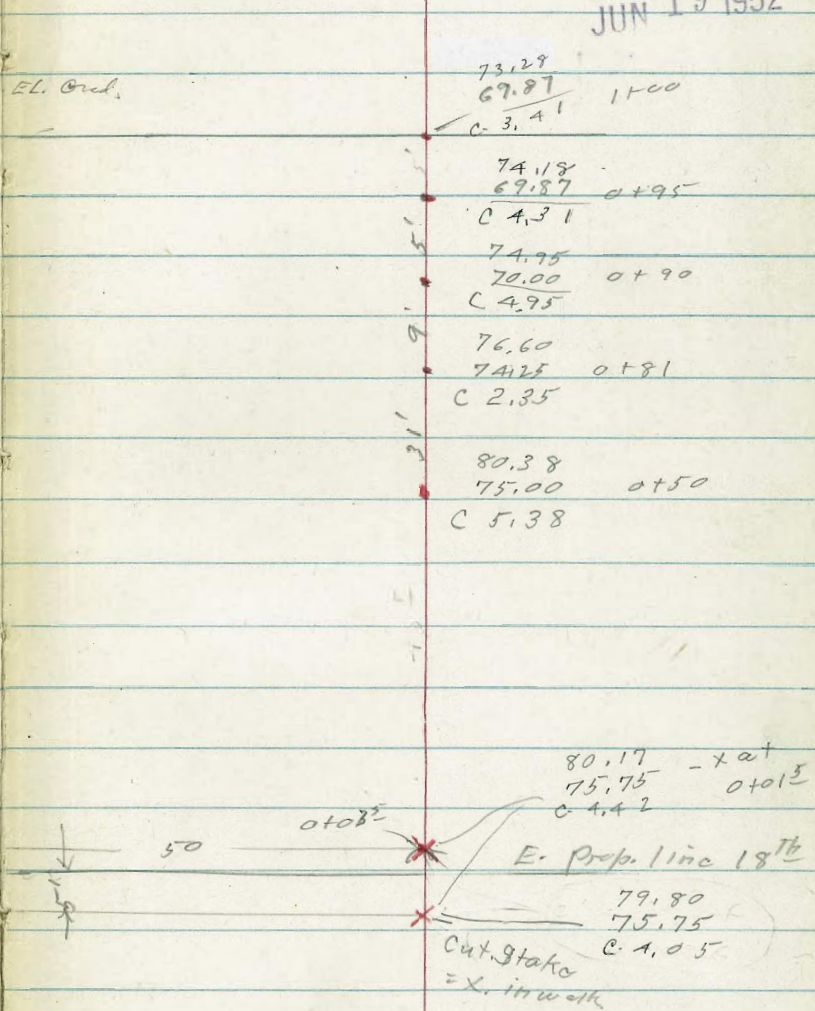 JUN 19 1952
EL. Grd.
73.28
69.87 1+00
C 3.41
5'
74.18
69.87 0+95
C 4.31
5'
74.95
70.00 0+90
C 4.95
9'
76.60
74.25 0+81
C 2.35
31'
80.38
75.00 0+50
C 5.38
80.17 - x at
75.75 0+01⁵
C 4.42
50
E. Prop. line 18th
5'
79.80
75.75
C 4.05
Cut. Stake
= X. in walk